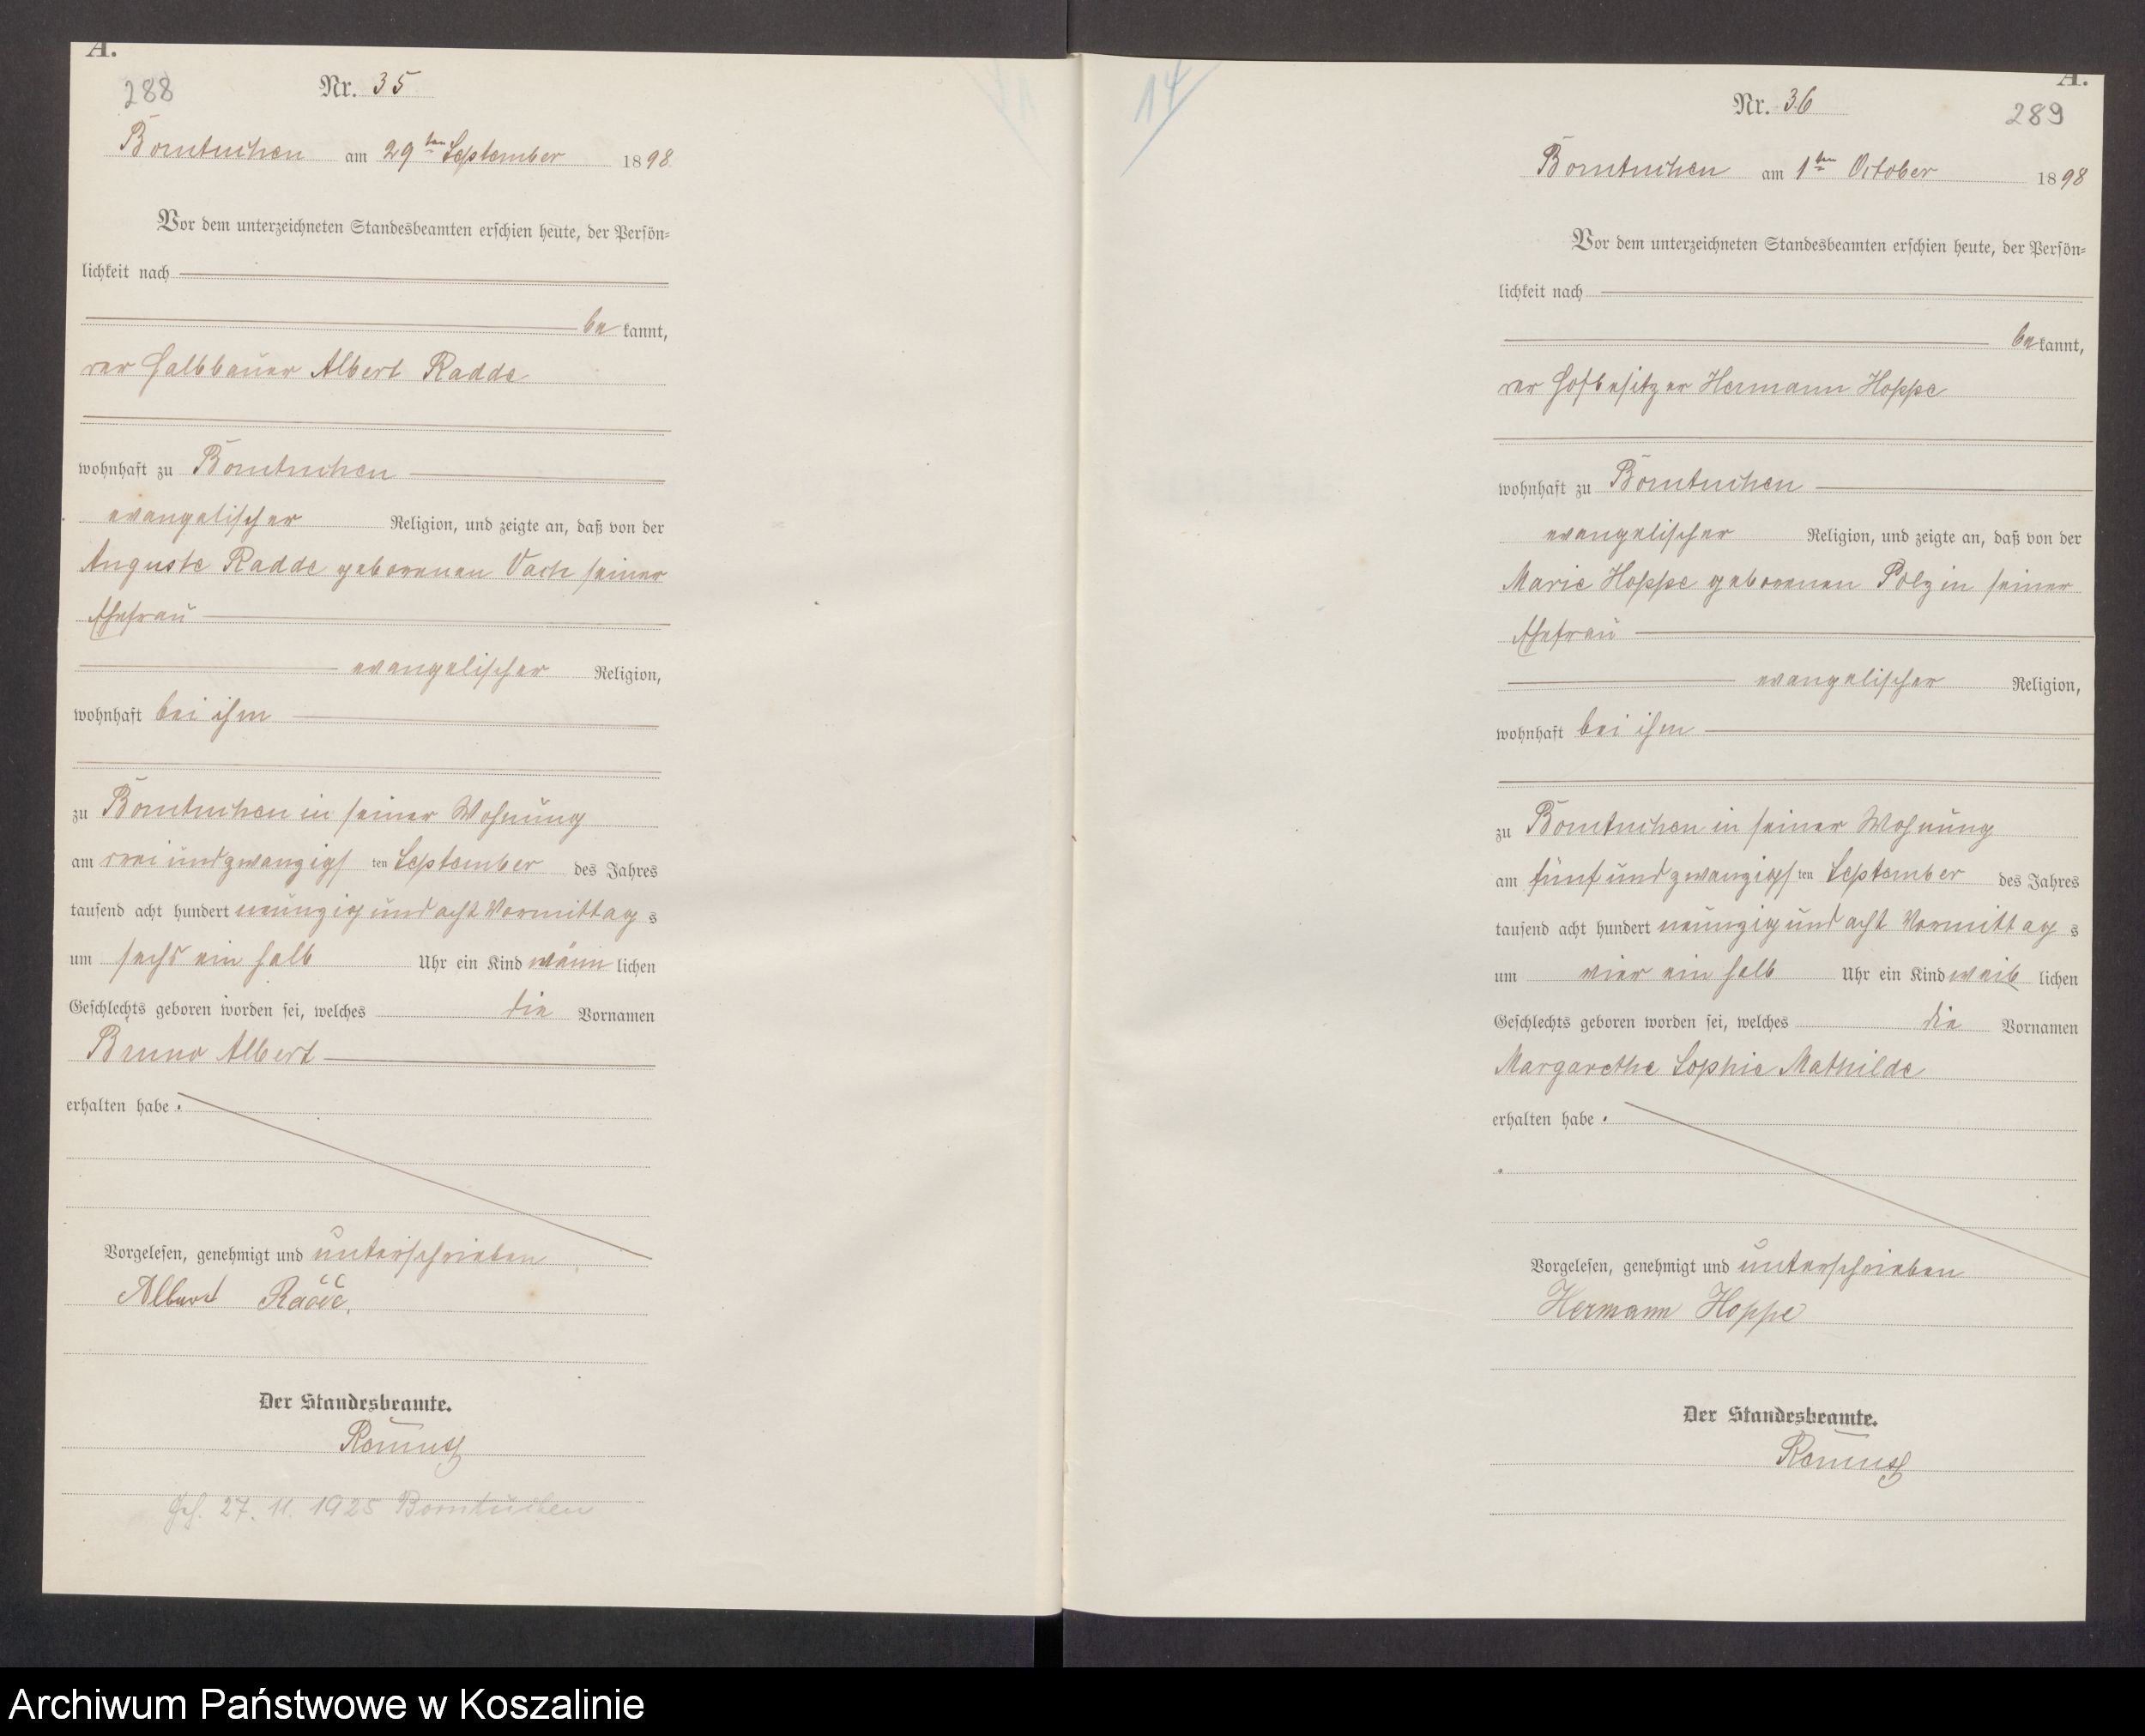 A.
288
Nr. 35
Borntuchen am 29ten September 1898.
Vor dem unterzeichneten Standesbeamten erschien heute, der Persön=
lichkeit nach
be kannt,
der Halbbauer Albert Radde
wohnhaft zu Borntuchen
evangelischer Religion, und zeigte an, daß von der
Auguste Radde geborenen Vach seiner
Ehefrau
evangelischer Religion,
wohnhaft bei ihm
zu Borntuchen in seiner Wohnung
am drei und zwanzigsten September des Jahres
tausend acht hundert neunzig und acht Vormittags
um sechs ein halb Uhr ein Kind männlichen
Geschlechts geboren worden sei, welches die Vornamen
Bruno Albert
erhalten habe.
Vorgelesen, genehmigt und unterschrieben
Albert Radde.
Der Standesbeamte.
27. 11. 1925 Borntuchen
14
A.
Nr. 36
289
Borntuchen am 1ten October 1898
Vor dem unterzeichneten Standesbeamten erschien heute, der Persön=
lichkeit nach
bekannt,
der Hofbesitzer Hermann Hoppe
wohnhaft zu Borntuchen
evangelischer Religion, und zeigte an, daß von der
Marie Hoppe geborenen Polzin seiner
Ehefrau
evangelischer Religion,
wohnhaft bei ihm
zu Borntuchen in seiner Wohnung
am fünf und zwanzigsten September des Jahres
tausend acht hundert neunzig und acht Vormittags
um vier ein halb Uhr ein Kind weiblichen
Geschlechts geboren worden sei, welches die Vornamen
Margarethe Sophie Mathilde
erhalten habe.
Vorgelesen, genehmigt und unterschrieben
Hermann Hoppe
Der Standesbeamte.
Archiwum Państwowe w Koszalinie